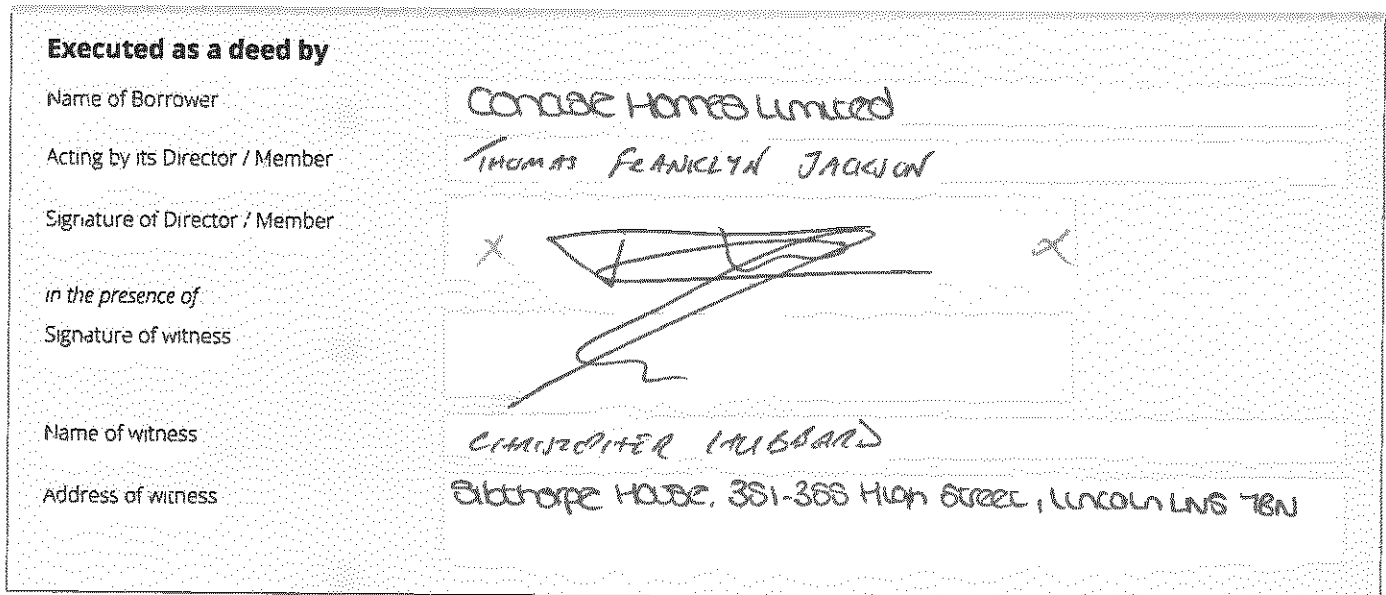 Executed as a deed by
Name of Borrower Concise Homes Limited
Acting by its Director / Member THOMAS FRANKLYN JACKSON
Signature of Director / Member X X
in the presence of
Signature of witness
Name of witness CHRISTOPHER HUBBARD
Address of witness Sibthorpe House, 351-355 High Street, Lincoln LN5 7BN